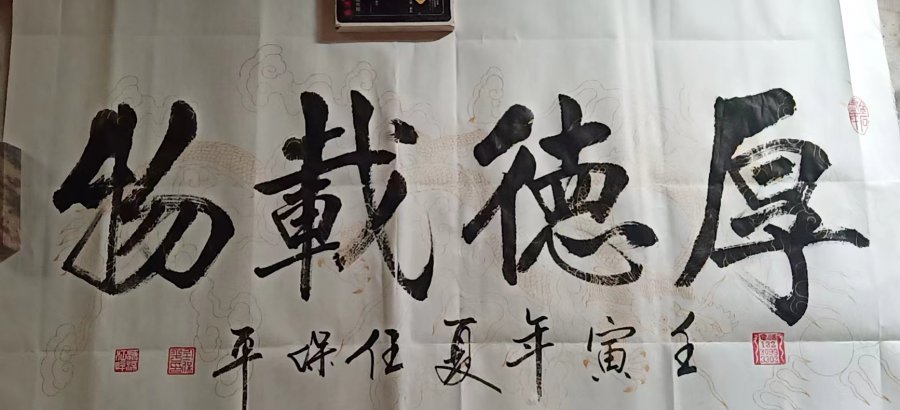 厚德載物
壬寅年夏任保平